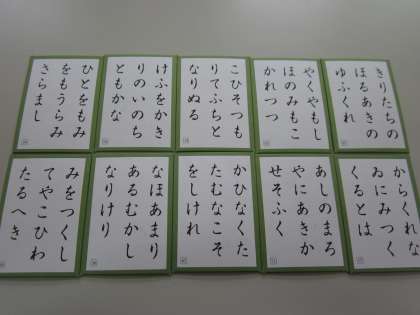 きりたちの
ほるあきの
ゆふくれ
やくやもし
ほのみもこ
かれつつ
こひそつも
りてふちと
なりぬる
けふをかき
りのいのち
ともかな
ひとをもみ
をもうらみ
さらまし
からくれな
ゐにみつく
くるとは
あしのまろ
やにあきか
せそふく
かひなくた
たむなこそ
をしけれ
なほあまり
あるむかし
なりけり
みをつくし
てやこひわ
たるへき